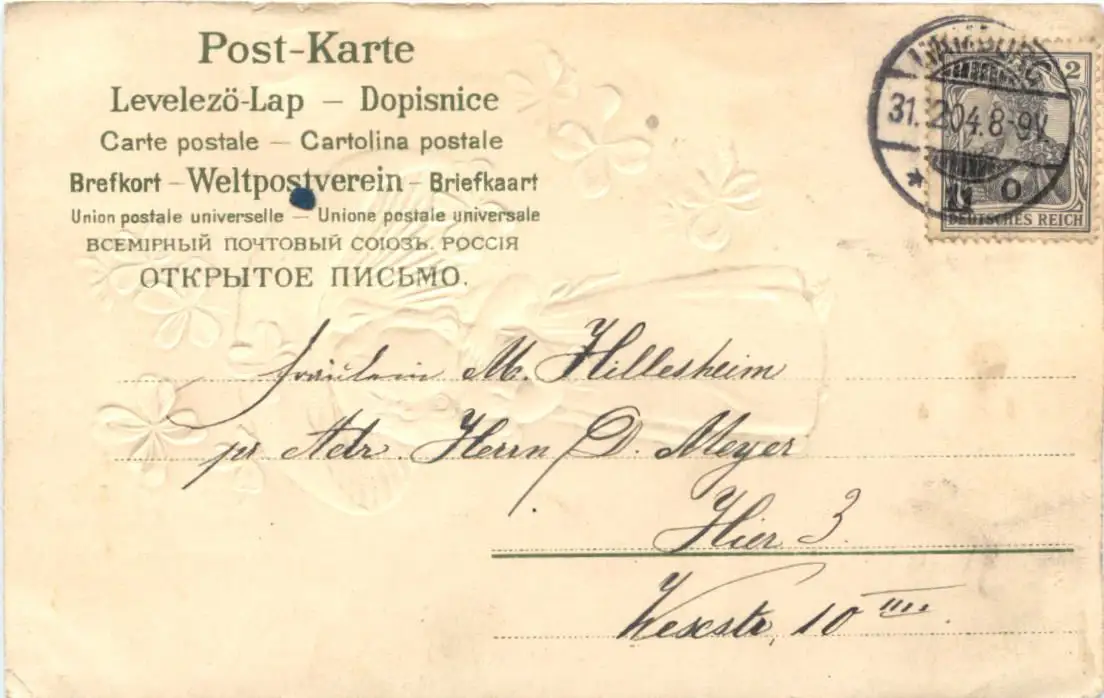 Post-Karte
Levelező-Lap – Dopisnice
Carte postale – Cartolina postale
Brefkort – Weltpostverein – Briefkaart
Union postale universelle – Unione postale universale
ВСЕМІРНЫЙ ПОЧТОВЫЙ СОЮЗЪ. РОССІЯ
ОТКРЫТОЕ ПИСЬМО.
HAMBURG
31.12.04. 8-9V.
* 1 o
2
DEUTSCHES REICH
Fräulein M. Hillesheim
pr Adr. Herrn D. Meyer
Hier 3.
Wexstr, 10 IIII.